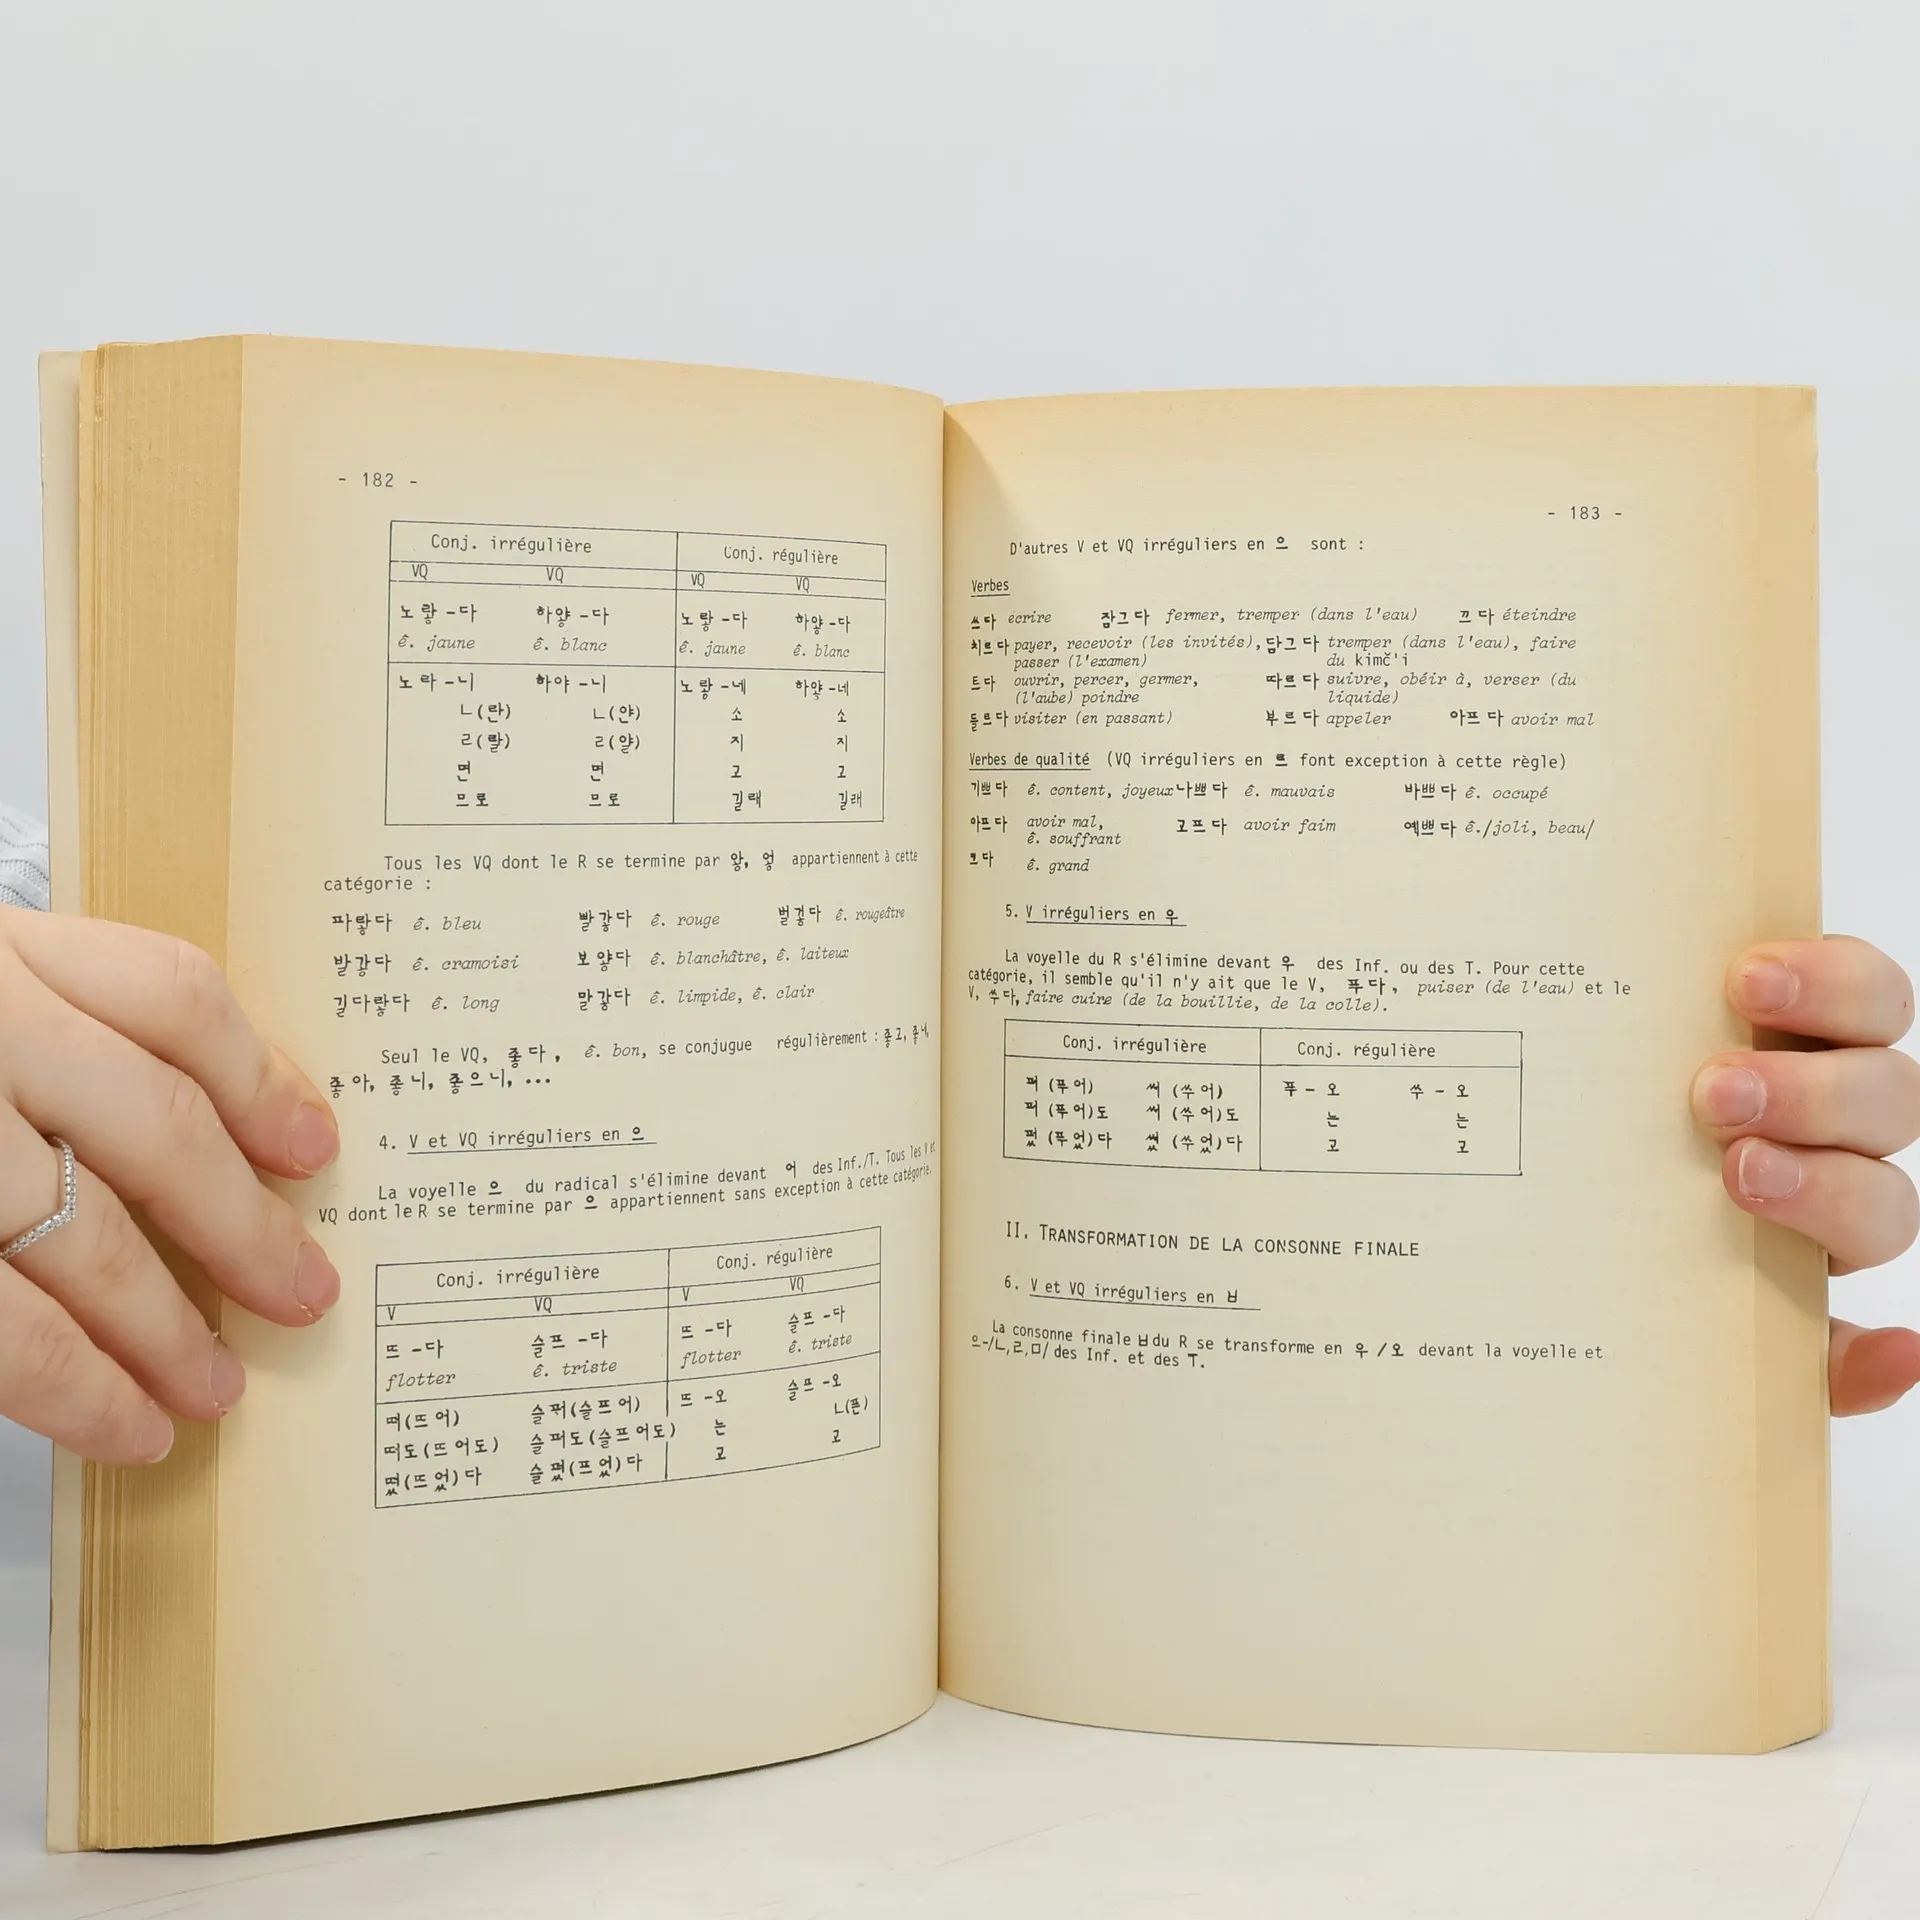 - 182 -
Conj. irrégulière Conj. régulière
VQ VQ VQ VQ
노랗-다 하얗-다 노랗-다 하얗-다
ê. jaune ê. blanc ê. jaune ê. blanc
노라-니 하야-니 노랗-네 하얗-네
ㄴ(란) ㄴ(얀) 소 소
ㄹ(랄) ㄹ(얄) 지 지
면 면 고 고
므로 므로 길래 길래
Tous les VQ dont le R se termine par 앟, 엏 appartiennent à cette
catégorie :
파랗다 ê. bleu 빨갛다 ê. rouge 벌겋다 ê. rougeâtre
발갛다 ê. cramoisi 보얗다 ê. blanchâtre, ê. laiteux
길다랗다 ê. long 말갛다 ê. limpide, ê. clair
Seul le VQ, 좋다, ê. bon, se conjugue régulièrement : 좋고, 좋네,
좋아, 좋니, 좋으니, ...
4. V et VQ irréguliers en 으
La voyelle 으 du radical s'élimine devant 어 des Inf./T. Tous les V et
VQ dont le R se termine par 으 appartiennent sans exception à cette catégorie.
Conj. irrégulière Conj. régulière
V VQ V VQ
뜨-다 슬프-다 뜨-다 슬프-다
flotter ê. triste flotter ê. triste
떠(뜨어) 슬퍼(슬프어) 뜨-오 슬프-오
떠도(뜨어도) 슬퍼도(슬프어도) 는 ㄴ(픈)
떴(뜨었)다 슬펐(프었)다 고 고
- 183 -
D'autres V et VQ irréguliers en 으 sont :
Verbes
쓰다 écrire 잠그다 fermer, tremper (dans l'eau) 끄다 éteindre
치르다 payer, recevoir (les invités), 담그다 tremper (dans l'eau), faire
passer (l'examen) du kimč'i
트다 ouvrir, percer, germer, 따르다 suivre, obéir à, verser (du
(l'aube) poindre liquide)
들르다 visiter (en passant) 부르다 appeler 아프다 avoir mal
Verbes de qualité (VQ irréguliers en 르 font exception à cette règle)
기쁘다 ê. content, joyeux 나쁘다 ê. mauvais 바쁘다 ê. occupé
아프다 avoir mal, 고프다 avoir faim 예쁘다 ê./joli, beau/
ê. souffrant
크다 ê. grand
5. V irréguliers en 우
La voyelle du R s'élimine devant 우 des Inf. ou des T. Pour cette
catégorie, il semble qu'il n'y ait que le V, 푸다, puiser (de l'eau) et le
V, 쑤다, faire cuire (de la bouillie, de la colle).
Conj. irrégulière Conj. régulière
퍼 (푸어) 써 (쑤어) 푸 - 오 쑤 - 오
퍼 (푸어)도 써 (쑤어)도 는 는
펐 (푸었)다 썼 (쑤었)다 고 고
II. TRANSFORMATION DE LA CONSONNE FINALE
6. V et VQ irréguliers en ㅂ
La consonne finale ㅂ du R se transforme en 우 / 오 devant la voyelle et
으-/ㄴ,ㄹ,ㅁ/ des Inf. et des T.